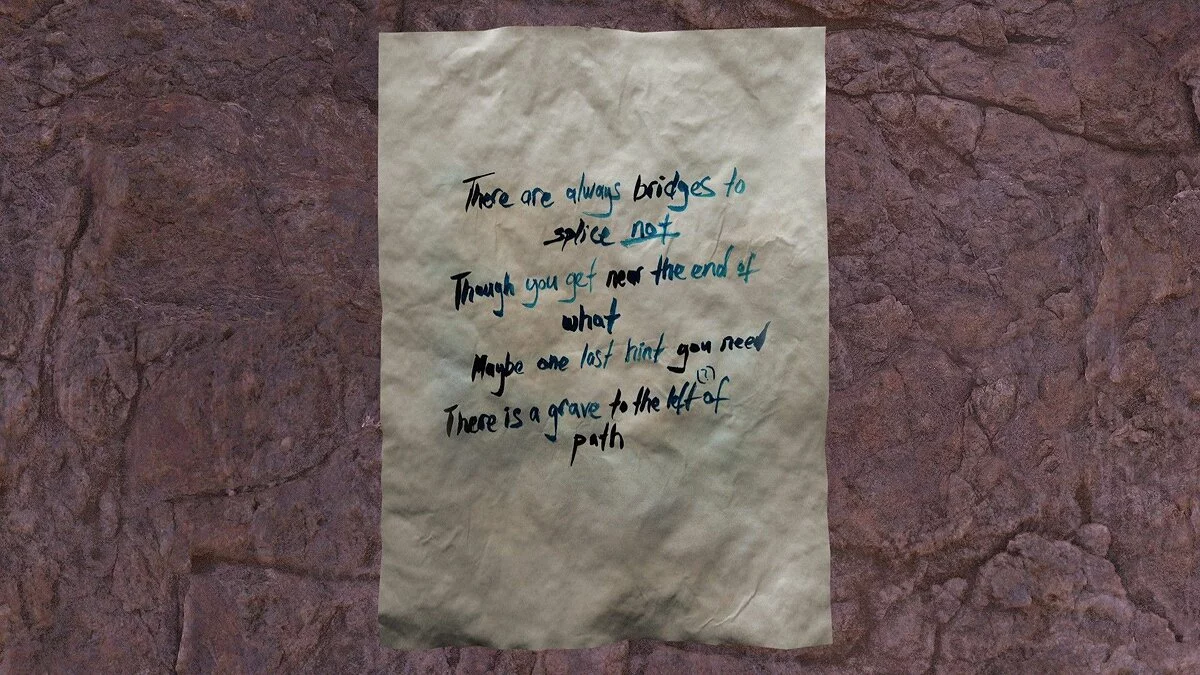 There are always bridges to
splice not
Though you get near the end of
what
Maybe one last hint you need
(?)
There is a grave to the left of
path